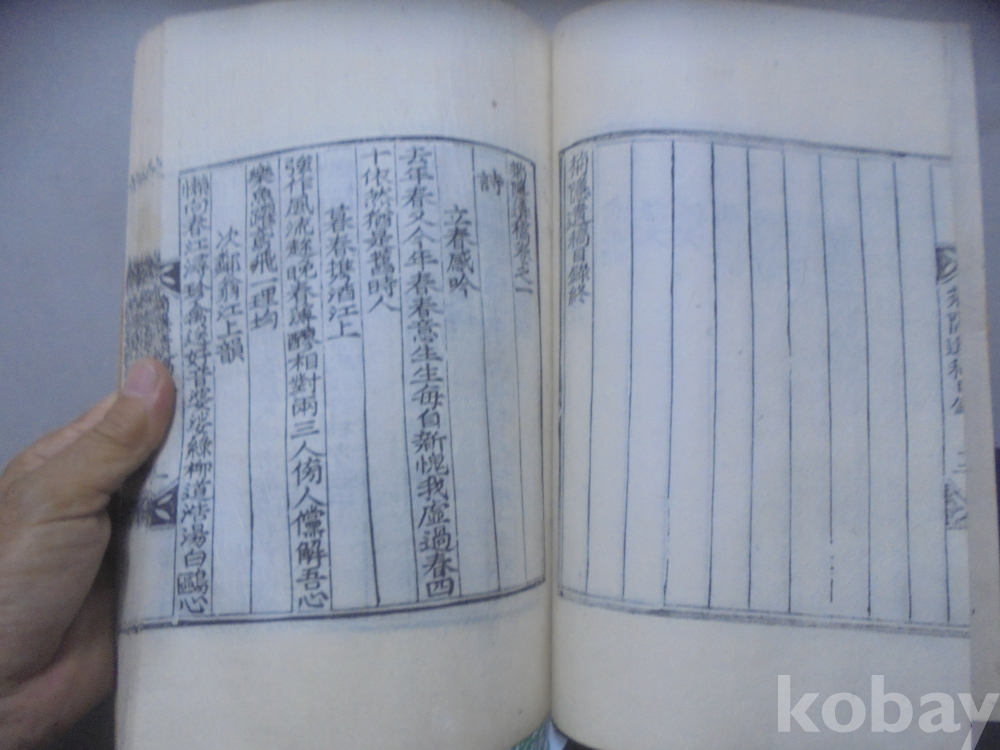 菊隱遺稿目錄終
菊隱遺稿目錄 二
菊隱遺稿卷之一
詩
立春感吟
去年春又今年春春意生生每自新愧我虛過春四
十依然猶是舊時人
暮春携酒江上
強作風流趂晚春薄醪相對兩三人傍人儻解吾心
樂魚躍鳶飛一理均
次鄰翁江上韻
懶向春江濤珍禽送好音婆娑綠柳道浩湯白鷗心
kobay